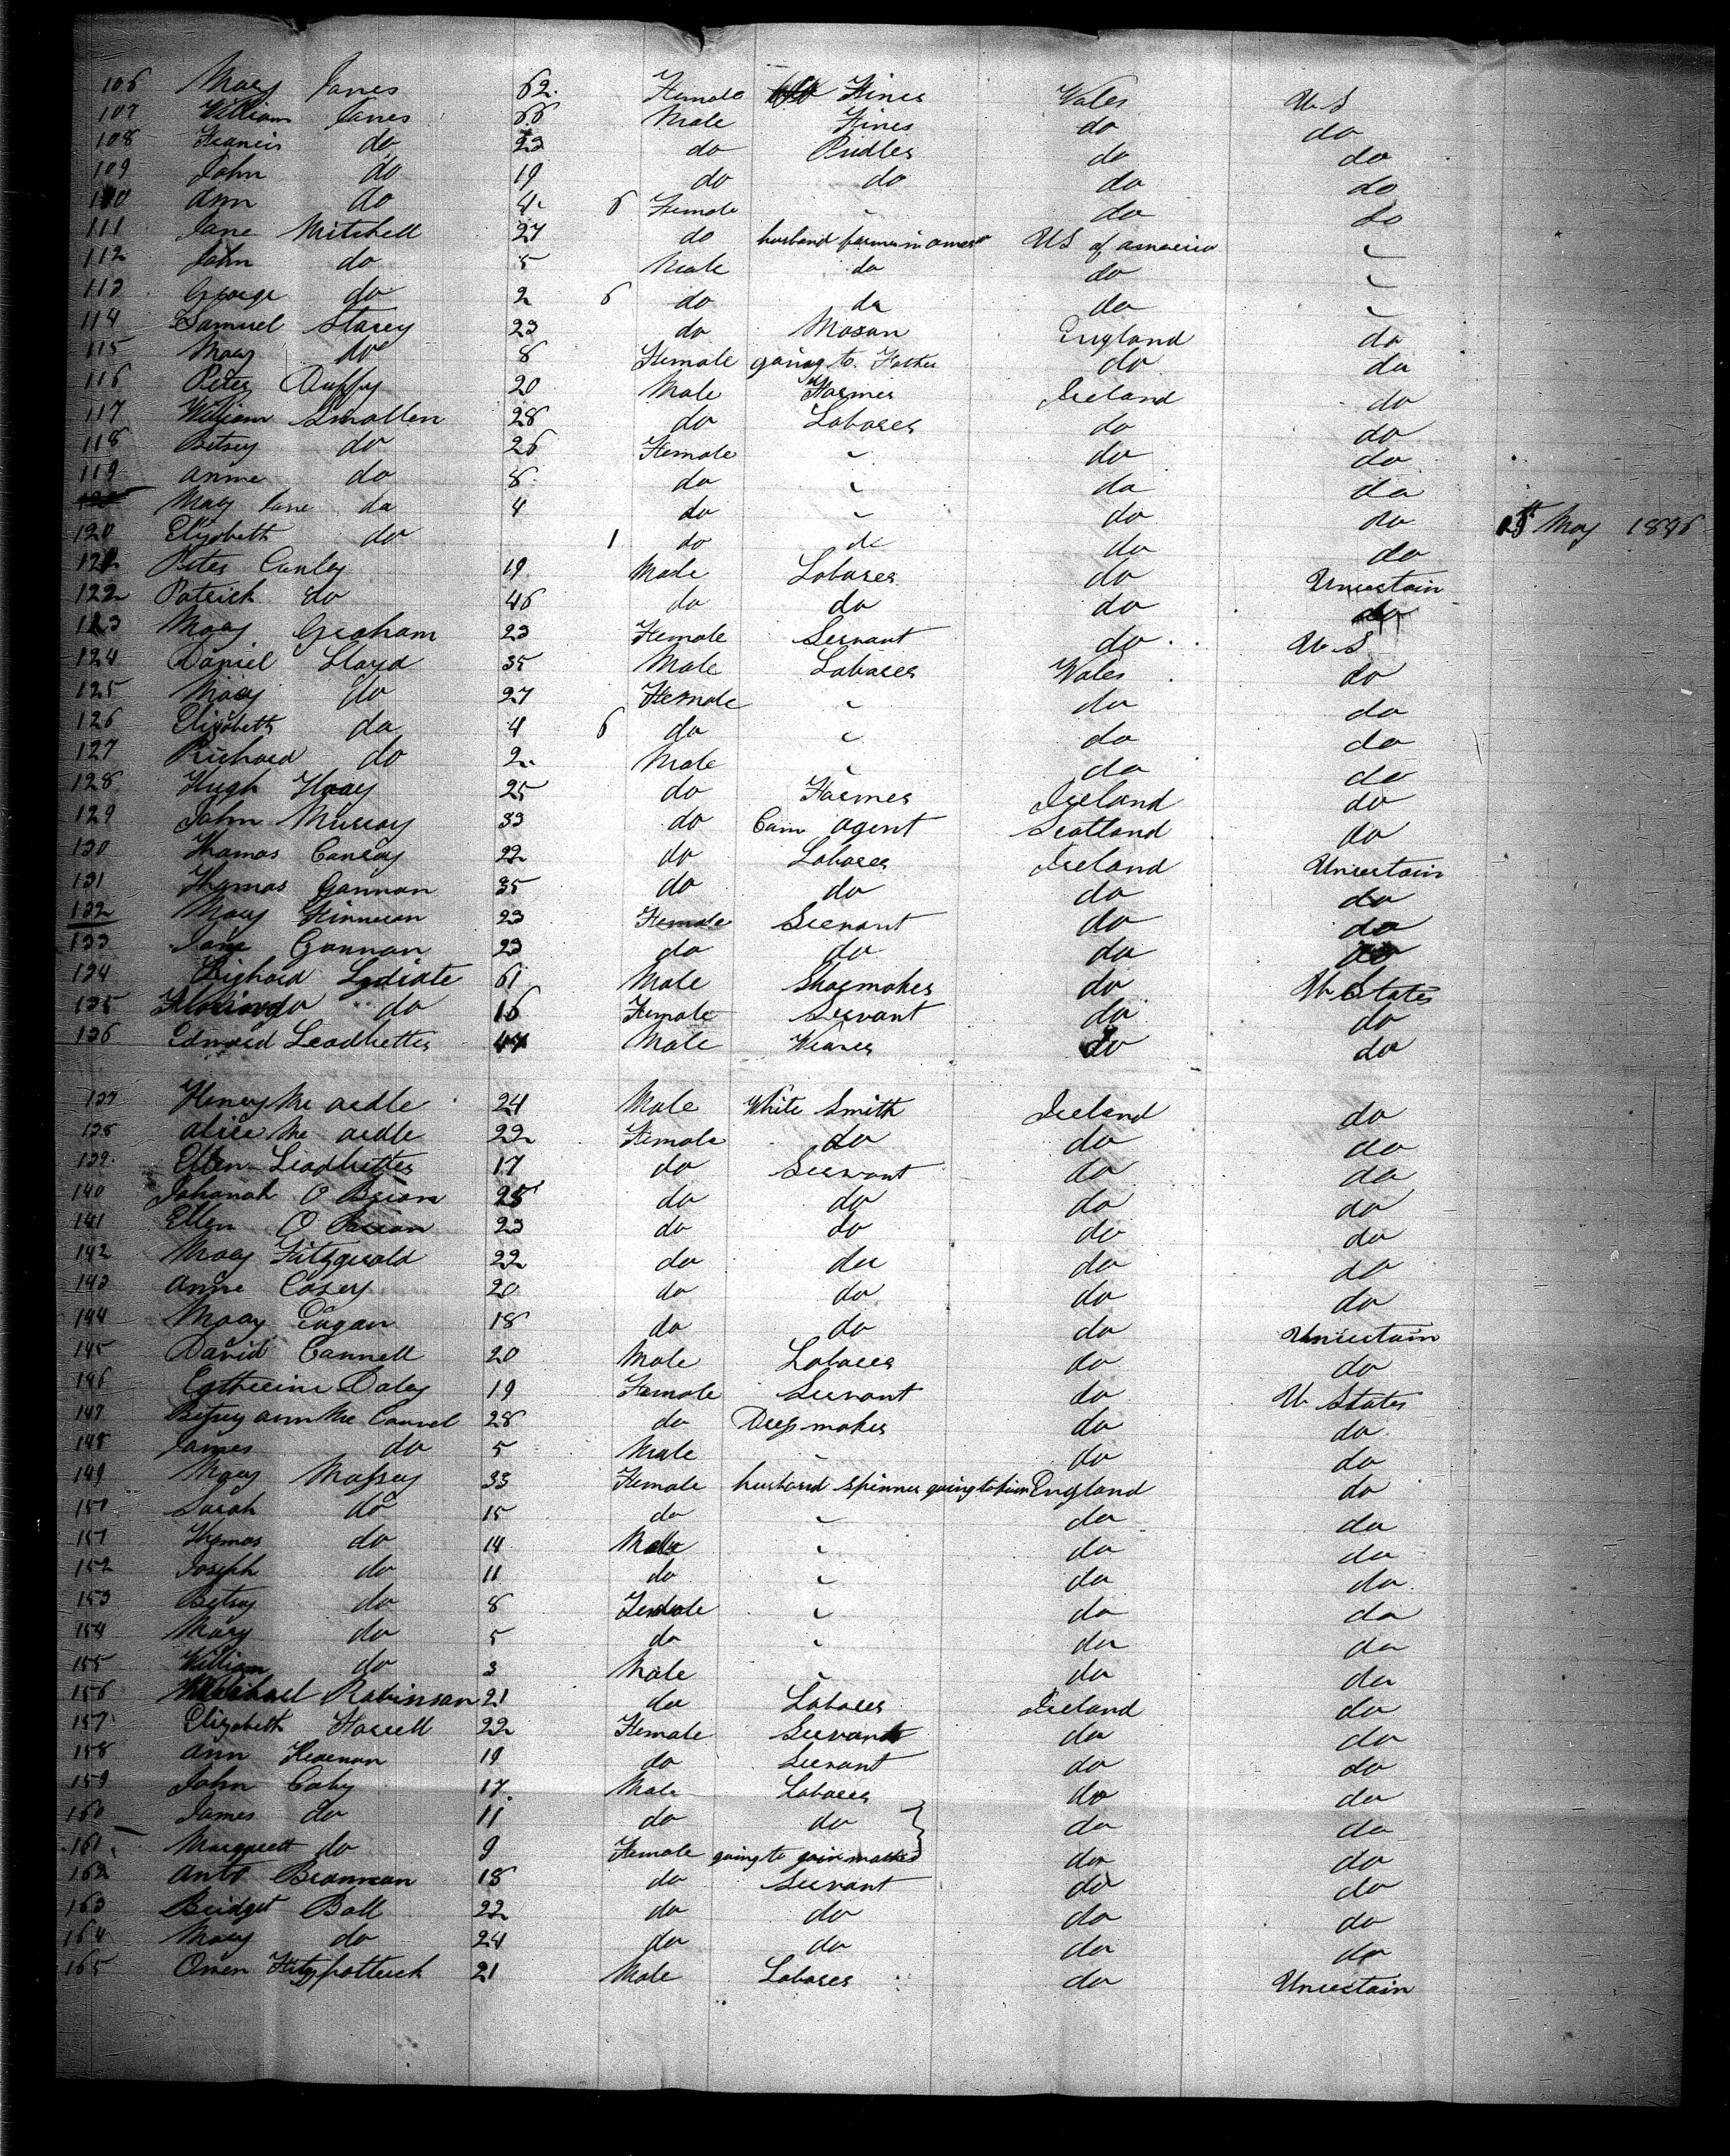 106 Mary Jones 62. Female Finer Wales U S
107 William Jones 66 Male Finer do do
108 Francis do 22 do Pudler do do
109 John do 19 do do do do
110 Ann do 4 6 Female " do do
111 Jane Mitchell 27 do husband farmer in U S of america "
112 John do 5 Male do do "
113 George do 2 6 do do do "
114 Samuel Stacey 23 do Mason England do
115 Mary do 8 Female going to Father do do
116 Peter Duffy 20 Male Farmer Ireland do
117 William Smallen 28 do Laborer do do
118 Betsey do 26 Female " do do
119 Anne do 8 do " do do
Mary Jane do 4 do " do do
120 Elizabeth do 1 do do do do 15th May 1846
121 Peter Canley 19 Male Laborer do Uncertain
122 Patrick do 46 do do do do
123 Mary Graham 23 Female Servant do U S
124 Daniel Lloyd 35 Male Laborer Wales do
125 Mary do 27 Female " do do
126 Elizabeth do 4 6 do " do do
127 Richard do 2 Male " do do
128 Hugh Hoay 25 do Farmer Ireland do
129 John Murray 33 do Com agent Scotland do
130 Thomas Conray 22 do Laborer Ireland Uncertain
131 Thomas Gannan 35 do do do do
132 Mary Finneran 23 Female Servant do do
133 Jane Gannan 23 do do do do
134 Richard Lydiate 61 Male Shoemaker do U States
135 do 16 Female Servant do do
136 Edward Leadbetter 47 Male Weaver do do
137 Henry Mc ardle 24 Male White Smith Ireland do
138 alice Mc ardle 22 Female do do do
139 Ellen Leadbetter 17 do Servant do do
140 Johanah O Brian 25 do do do do
141 Ellen O Brian 23 do do do do
142 Mary Fitzgerald 22 do do do do
143 Anne Casey 20 do do do do
144 Mary Eagan 18 do do do Uncertain
145 David Cannell 20 Male Laborer do do
146 Catherine Daley 19 Female Servant do U States
147 Betsey ann Mc Connel 28 do maker do do
148 James do 5 Male " do do
149 Mary Massey 33 Female husband spinner going to him England do
150 Sarah do 15 do " do do
151 Thomas do 14 Male " do do
152 Joseph do 11 do " do do
153 Betsey do 8 Female " do do
154 Mary do 5 do " do do
155 William do 3 Male " do do
156 Michael Robinson 21 do Laborer Ireland do
157 Elizabeth Farrell 22 Female Servant do do
158 Ann Keenan 19 do Servant do do
159 John Coby 17 Male Laborer do do
160 James do 11 do do do do
161 Margarett do 9 Female going to goin mother do do
162 Anto Brannan 18 do Servant do do
163 Bridget Ball 22 do do do do
164 Mary do 24 do do do do
165 Owen Fitzpatrick 21 Male Laborer do Uncertain